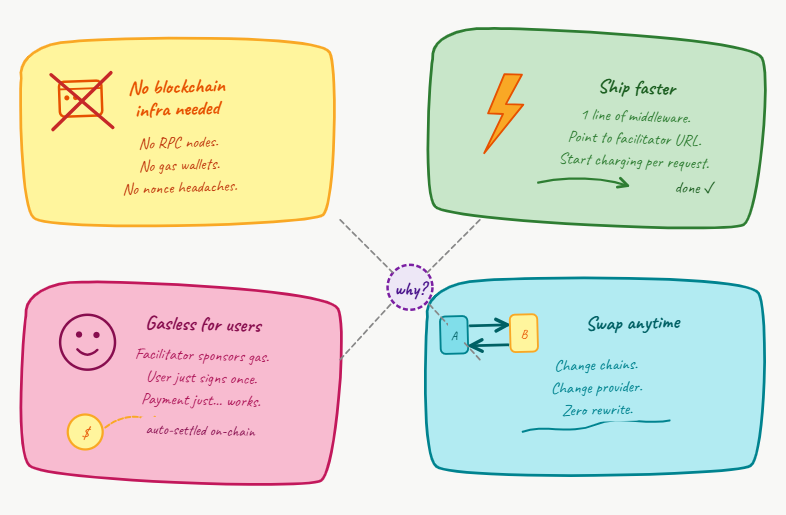 No blockchain
infra needed
No RPC nodes.
No gas wallets.
No nonce headaches.
Ship faster
1 line of middleware.
Point to facilitator URL.
Start charging per request.
done ✓
why?
Gasless for users
Facilitator sponsors gas.
User just signs once.
Payment just... works.
$
auto-settled on-chain
A
B
Swap anytime
Change chains.
Change provider.
Zero rewrite.